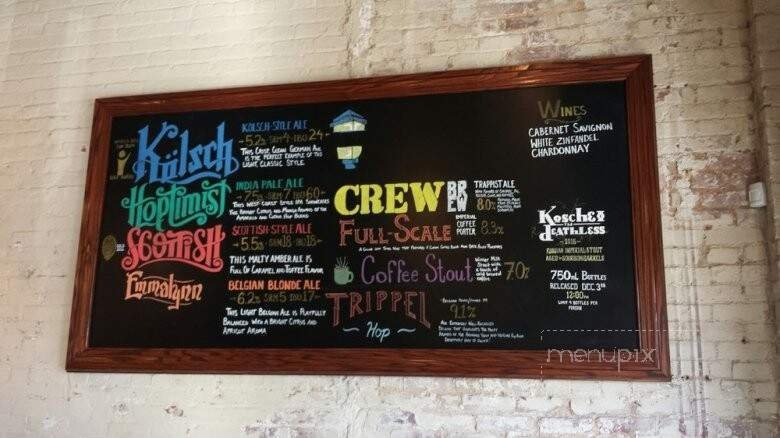 Kölsch
KÖLSCH-STYLE ALE
5.2% SRM 4 IBU 24
THIS CRISP, CLEAN GERMAN ALE
IS THE PERFECT EXAMPLE OF THIS
LIGHT, CLASSIC STYLE.
Hoptimist
INDIA PALE ALE
7.5% SRM 7 IBU 60
THIS WEST-COAST STYLE IPA SHOWCASES
THE BRIGHT CITRUS AND MANGO AROMAS OF THE
AMARILLO AND CITRA HOP BLEND
SCOTTISH
SCOTTISH-STYLE ALE
5.5% SRM 18 IBU 18
THIS MALTY AMBER ALE IS
FULL OF CARAMEL AND TOFFEE FLAVOR
Emmalynn
BELGIAN BLONDE ALE
6.2% SRM 5 IBU 17
THIS LIGHT BELGIAN ALE IS PLAYFULLY
BALANCED WITH A BRIGHT CITRUS AND
APRICOT AROMA
CREW BREW
TRAPPIST ALE
8.0%
FULL-SCALE
IMPERIAL
COFFEE
PORTER
8.3%
Coffee Stout
WINTER MILK
STOUT WITH
A TOUCH OF
COLD BREWED
COFFEE
7.0%
TRIPPEL
Hop
9.1%
WINES
CABERNET SAVIGNON
WHITE ZINFANDEL
CHARDONNAY
Koschei
THE
DEATHLESS
2016
RUSSIAN IMPERIAL STOUT
AGED IN BOURBON BARRELS
750ML BOTTLES
RELEASED DEC. 3RD
12:00PM
LIMIT 4 BOTTLES PER
PERSON
menupix